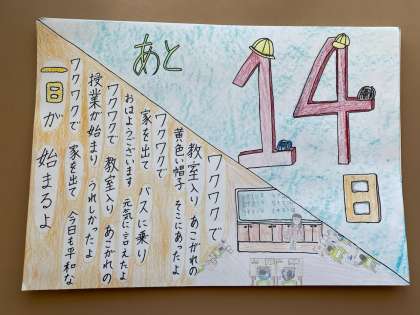 あと
14
日
ワクワクで
教室入り あこがれの
黄色い帽子 そこにあったよ
ワクワクで
家を出て バスに乗り
おはようございます 元気に言えたよ
ワクワクで 教室入り あこがれの
授業が始まり うれしかったよ
ワクワクで 家を出て 今日も平和な
一日が 始まるよ